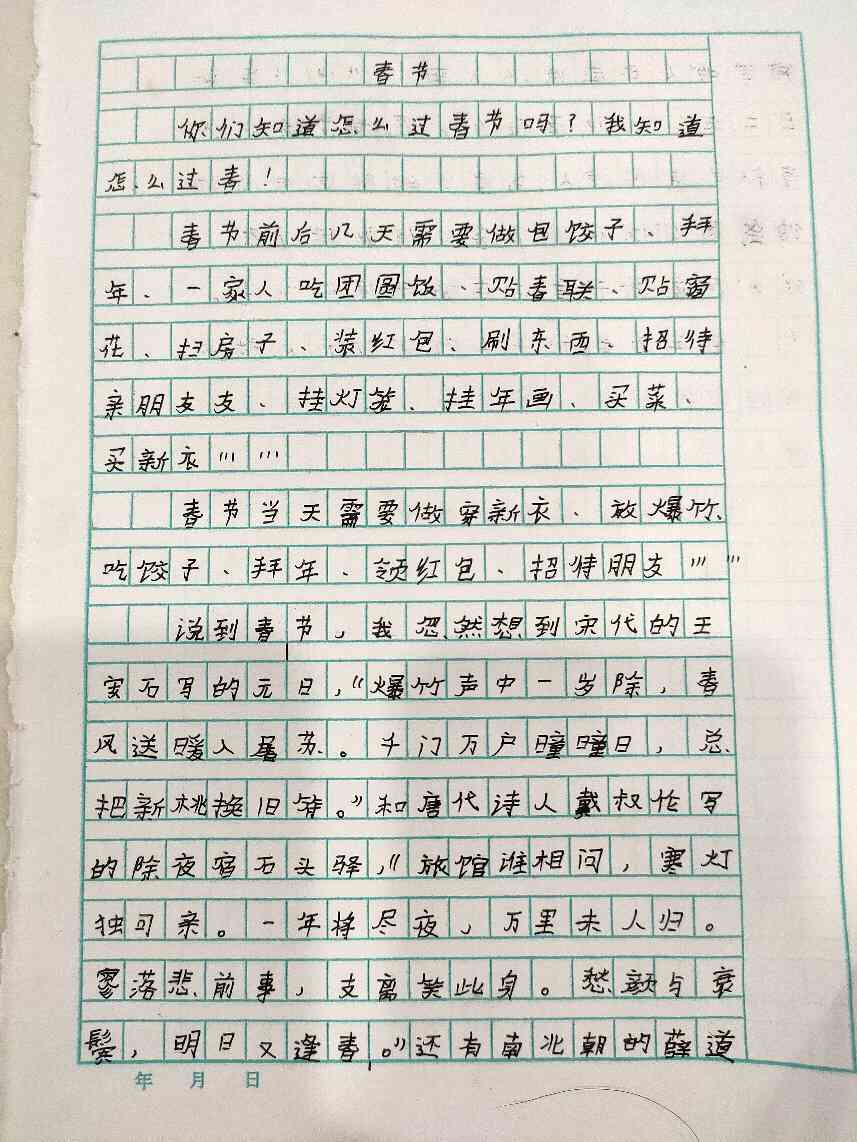 春节
你们知道怎么过春节吗？我知道
怎么过春！
春节前后几天需要做包饺子、拜
年、一家人吃团圆饭、贴春联、贴窗
花、扫房子、装红包、刷东西、招待
亲朋友友、挂灯笼、挂年画、买菜、
买新衣……
春节当天需要做穿新衣、放爆竹、
吃饺子、拜年、领红包、招待朋友……
说到春节，我忽然想到宋代的王
安石写的元日，“爆竹声中一岁除，春
风送暖入屠苏。千门万户曈曈日，总
把新桃换旧符。”和唐代诗人戴叔伦写
的除夜宿石头驿，“旅馆谁相问，寒灯
独可亲。一年将尽夜，万里未人归。
寥落悲前事，支离笑此身。愁颜与衰
鬓，明日又逢春。”还有南北朝的薛道
年 月 日